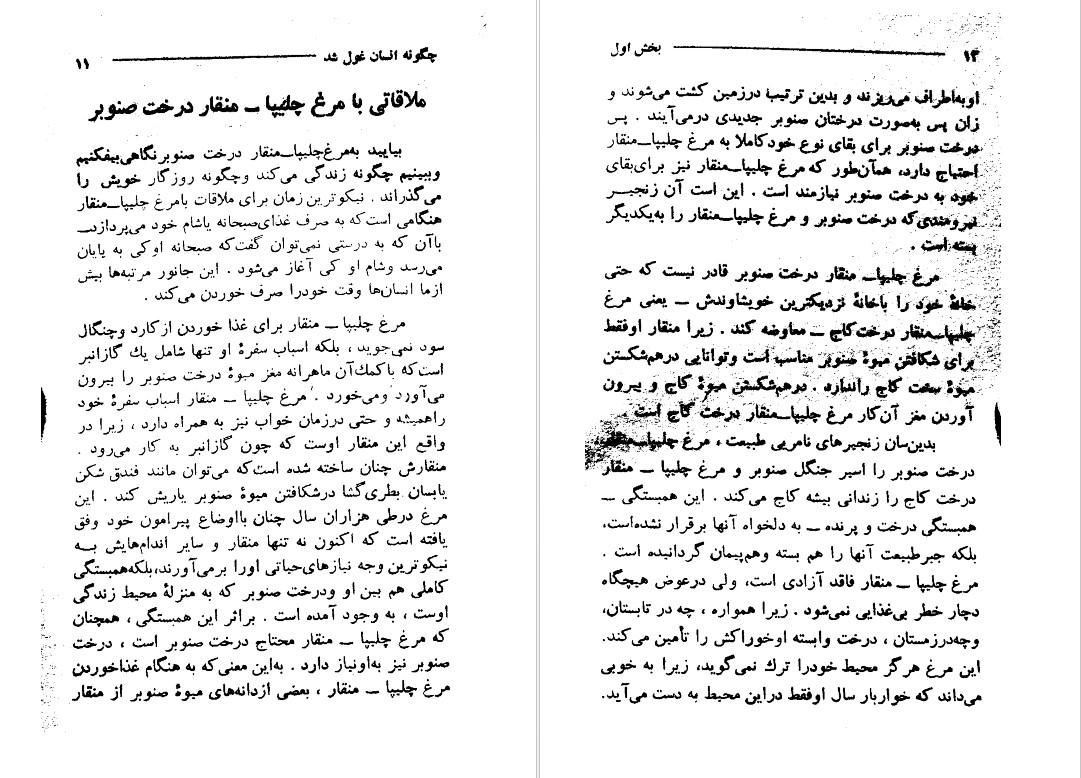 چگونه انسان غول شد ۱۱
ملاقاتی با مرغ چلیپا ـ منقار درخت صنوبر
بیایید به‌مرغ‌چلیپاـمنقار درخت صنوبرنگاهی‌بیفکنیم
وببینیم چگونه زندگی می‌کند وچگونه روزگار خویش را
می‌گذراند . نیکوترین زمان برای ملاقات بامرغ چلیپاـمنقار
هنگامی است‌که به صرف غذای‌صبحانه یاشام خود می‌پردازدـ
باآن که به درستی نمی‌توان گفت‌که صبحانه اوکی به پایان
می‌رسد وشام او کی آغاز می‌شود . این جانور مرتبه‌ها بیش
ازما انسان‌ها وقت خودرا صرف خوردن می‌کند .
مرغ چلیپا ـ منقار برای غذا خوردن ازکارد وچنگال
سود نمی‌جوید ، بلکه اسباب سفرهٔ او تنها شامل یك گازانبر
است‌که باکمك‌آن ماهرانه مغز میوهٔ درخت صنوبر را بیرون
می‌آورد ومی‌خورد . مرغ چلیپا ـ منقار اسباب سفرهٔ خود
راهمیشه و حتی درزمان خواب نیز به همراه دارد ، زیرا در
واقع این منقار اوست که چون گازانبر به کار می‌رود .
منقارش چنان ساخته شده است‌که می‌توان مانند فندق شکن
یابسان بطری‌گشا درشکافتن میوهٔ صنوبر یاریش کند . این
مرغ درطی هزاران سال چنان بااوضاع پیرامون خود وفق
یافته است که اکنون نه تنها منقار و سایر اندام‌هایش بــه
نیکوترین وجه نیازهای‌حیاتی اورا برمی‌آورند،بلکه‌همبستگی
کاملی هم بین او ودرخت صنوبر که به منزلهٔ محیط زندگی
اوست ، به وجود آمده است . براثر این همبستگی ، همچنان
که مرغ چلیپا ـ منقار محتاج درخت صنوبر است ، درخت
صنوبر نیز به‌اونیاز دارد . به‌این معنی‌که به هنگام غذاخوردن
مرغ چلیپا ـ منقار ، بعضی ازدانه‌های میوهٔ صنوبر از منقار
بخش اول ۱۲
اوبه‌اطراف می‌ریزند و بدین ترتیب درزمین کشت می‌شوند و
زان پس به‌صورت درختان صنوبر جدیدی درمی‌آیند . پس
درخت صنوبر برای بقای نوع خودکاملا به مرغ چلیپاـمنقار
احتیاج دارد، همآن‌طور که‌مرغ چلیپاـمنقار نیز برای‌بقای
خود به درخت صنوبر نیازمند است . این است آن زنجیـر
نیرومندی‌که درخت صنوبر و مرغ چلیپاـمنقار را به‌یکدیگر
بسته است .
مرغ چلیپاـ منقار درخت صنوبر قادر نیست که حتی
خانهٔ خود را باخانهٔ نزدیکترین خویشاوندش ـ یعنی مرغ
چلیپاـمنقار درخت‌کاج ـ معاوضه کند . زیرا منقار اوفقط
برای شکافتن میوهٔ صنوبر مناسب است وتوانایی درهم‌شکستن
میوهٔ سخت کاج راندارد . درهم‌شکستن میوهٔ کاج و بیرون
آوردن مغز آن‌کار مرغ چلیپاـمنقار درخت کاج است .
بدین‌سان زنجیرهای نامریی طبیعت ، مرغ چلیپاـمنقار
درخت صنوبر را اسیر جنگل صنوبر و مرغ چلیپا ـ منقار
درخت کاج را زندانی بیشه کاج می‌کند . این همبستگی ـ
همبستگی درخت و پرنده ـ به دلخواه آنها برقرار نشده‌است،
بلکه جبرطبیعت آنها را هم بسته وهم‌پیمان گردانیده است .
مرغ چلیپا ـ منقار فاقد آزادی است، ولی درعوض هیچگاه
دچار خطر بی‌غذایی نمی‌شود . زیرا همواره ، چه در تابستان،
وچه‌درزمستان ، درخت وابسته اوخوراکش را تأمین می‌کند.
این مرغ هرگز محیط خودرا ترك نمی‌گوید، زیرا به خوبی
می‌داند که خواربار سال اوفقط دراین محیط به دست می‌آید.